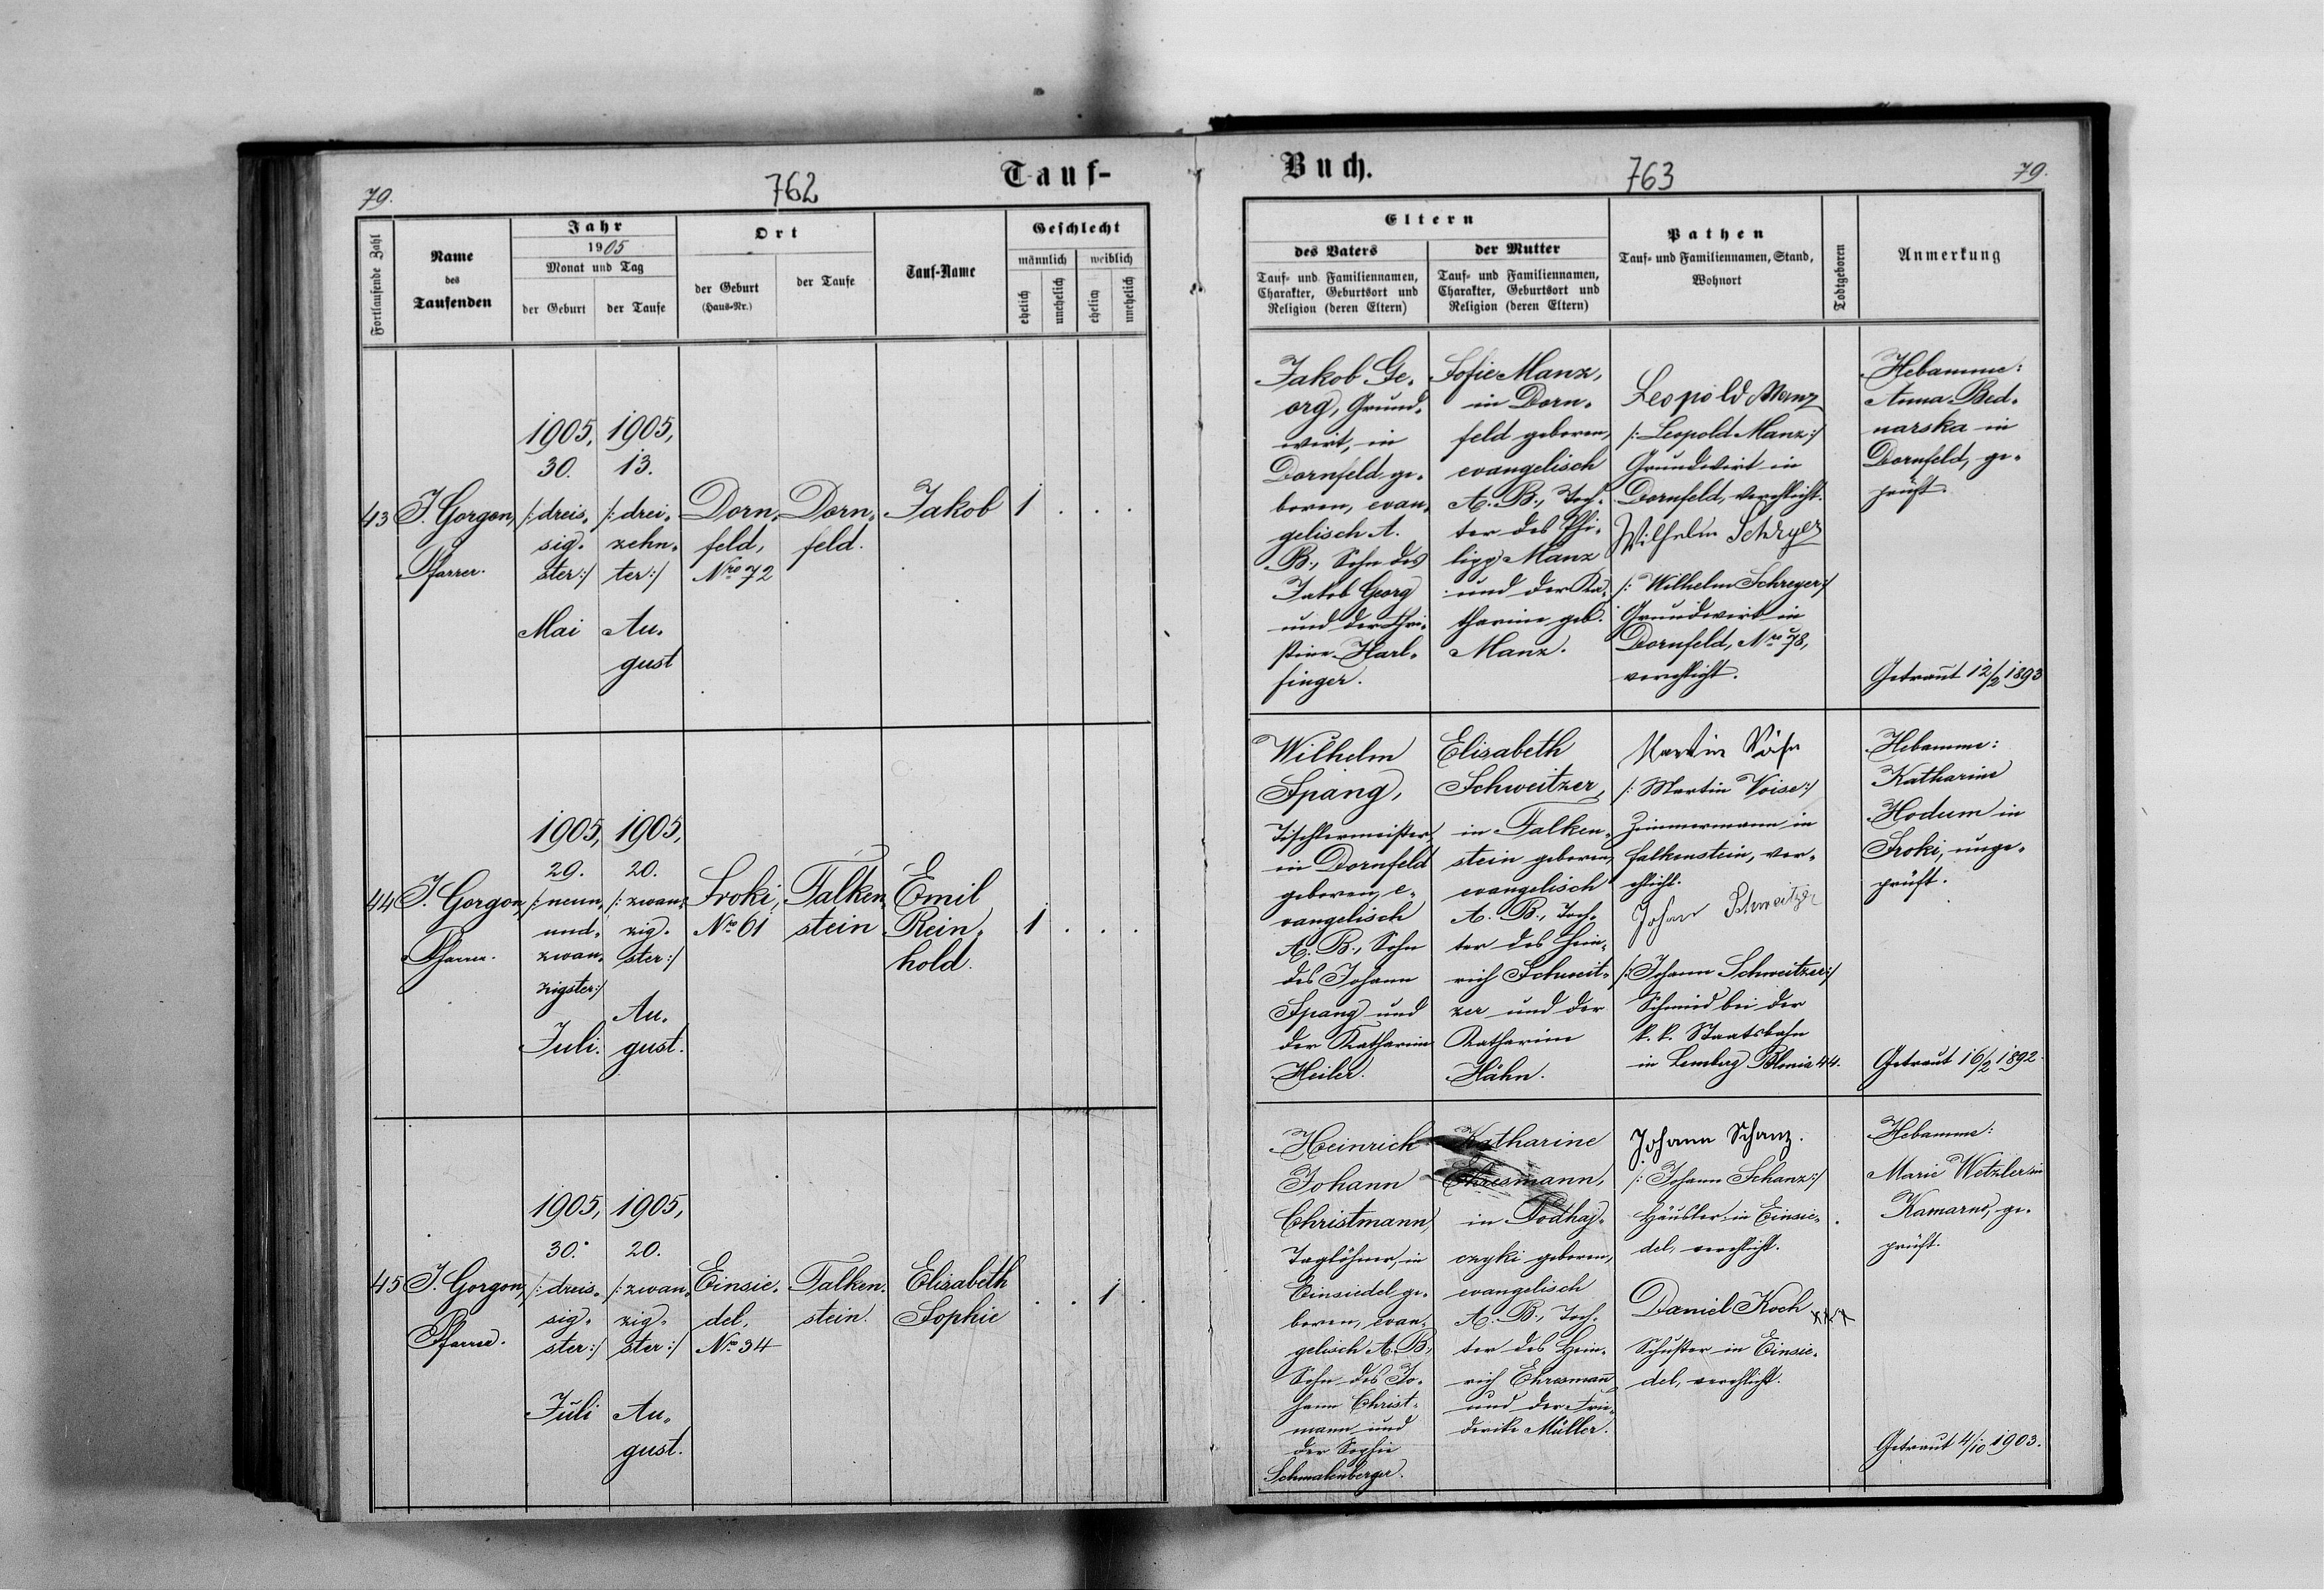 79.
762
Tauf-
Fortlaufende Zahl
Name
des
Taufenden
Jahr
1905
Monat und Tag
der Geburt
der Taufe
Ort
der Geburt
(Haus-Nr.)
der Taufe
Tauf-Name
Geschlecht
männlich
weiblich
ehelich
unehelich
ehelich
unehelich
43
J. Gorgon,
Pfarrer.
1905,
30.
/:dreis-
sig-
ster:/
Mai
1905,
13.
/:drei-
zehn-
ter:/
Au-
gust
Dorn-
feld,
Nro 72
Dorn-
feld.
Jakob
1 . . .
44
J. Gorgon,
Pfarrer.
1905,
29.
/:neun-
und-
zwan-
zigster:/
Juli.
1905,
20.
/:zwan-
zig-
ster:/
Au-
gust.
Sroki,
Nro 61
Falken-
stein
Emil
Rein-
hold.
1 . . .
45
J. Gorgon,
Pfarrer.
1905,
30.
/:dreis-
sig-
ster:/
Juli
1905,
20.
/:zwan-
zig-
ster:/
Au-
gust.
Einsie-
del,
Nro 34
Falken-
stein.
Elisabeth
Sophie
. . 1 .
Buch.
763
79.
Eltern
des Vaters
Tauf- und Familiennamen,
Charakter, Geburtsort und
Religion (deren Eltern)
der Mutter
Tauf- und Familiennamen,
Charakter, Geburtsort und
Religion (deren Eltern)
Pathen
Tauf- und Familiennamen, Stand,
Wohnort
Todtgeboren
Anmerkung
Jakob Ge-
org, Grund-
wirt, in
Dornfeld ge-
boren, evan-
gelisch A.
B., Sohn des
Jakob Georg
und der Chri-
stine Harl-
finger.
Sofie Manz,
in Dorn-
feld geboren,
evangelisch
A. B., Toch-
ter des Phi-
lipp Manz
und der Ka-
tharine geb.
Manz.
Leopold Manz
/:Leopold Manz:/
Grundwirt in
Dornfeld, verehlicht.
Wilhelm Schryer
/:Wilhelm Schreyer:/
Grundwirt in
Dornfeld, Nro 78,
verehlicht.
Hebamme:
Anna Bed-
narska in
Dornfeld, ge-
prüft.
Getraut 12/2 1893
Wilhelm
Spang,
Tischlermeister,
in Dornfeld
geboren, e-
vangelisch
A. B., Sohn
des Johann
Spang und
der Katharine
Heiler.
Elisabeth
Schweitzer,
in Falken-
stein geboren,
evangelisch
A. B., Toch-
ter des Hein-
rich Schweit-
zer und der
Katharine
Hähn.
Martin
/:Martin Voise:/
Zimmermann in
Falkenstein, ver-
ehlicht.
Johann Schweitzer
/:Johann Schweitzer:/
Schmied bei der
k. k. Staatsbahn
in Lemberg Blonia 44.
Hebamme:
Katharine
Hodum in
Sroki, unge-
prüft.
Getraut 16/2 1892.
Heinrich
Johann
Christmann,
Taglöhner, in
Einsiedel ge-
boren, evan-
gelisch A. B.,
Sohn des Jo-
hann Christ-
mann und
der Sophie
Schmalenberger.
Katharine
Ehresmann,
in Podhaj-
czyki geboren,
evangelisch
A. B., Toch-
ter des Hein-
rich Ehresmann
und der Frie-
derike Müller.
Johann Schanz.
/:Johann Schanz:/
Häusler in Einsie-
del, verehlicht.
Daniel Koch xxx
Schuster in Einsie-
del, verehlicht.
Hebamme:
Marie Wetzler in
Kamarno, ge-
prüft.
Getraut 4/10 1903.